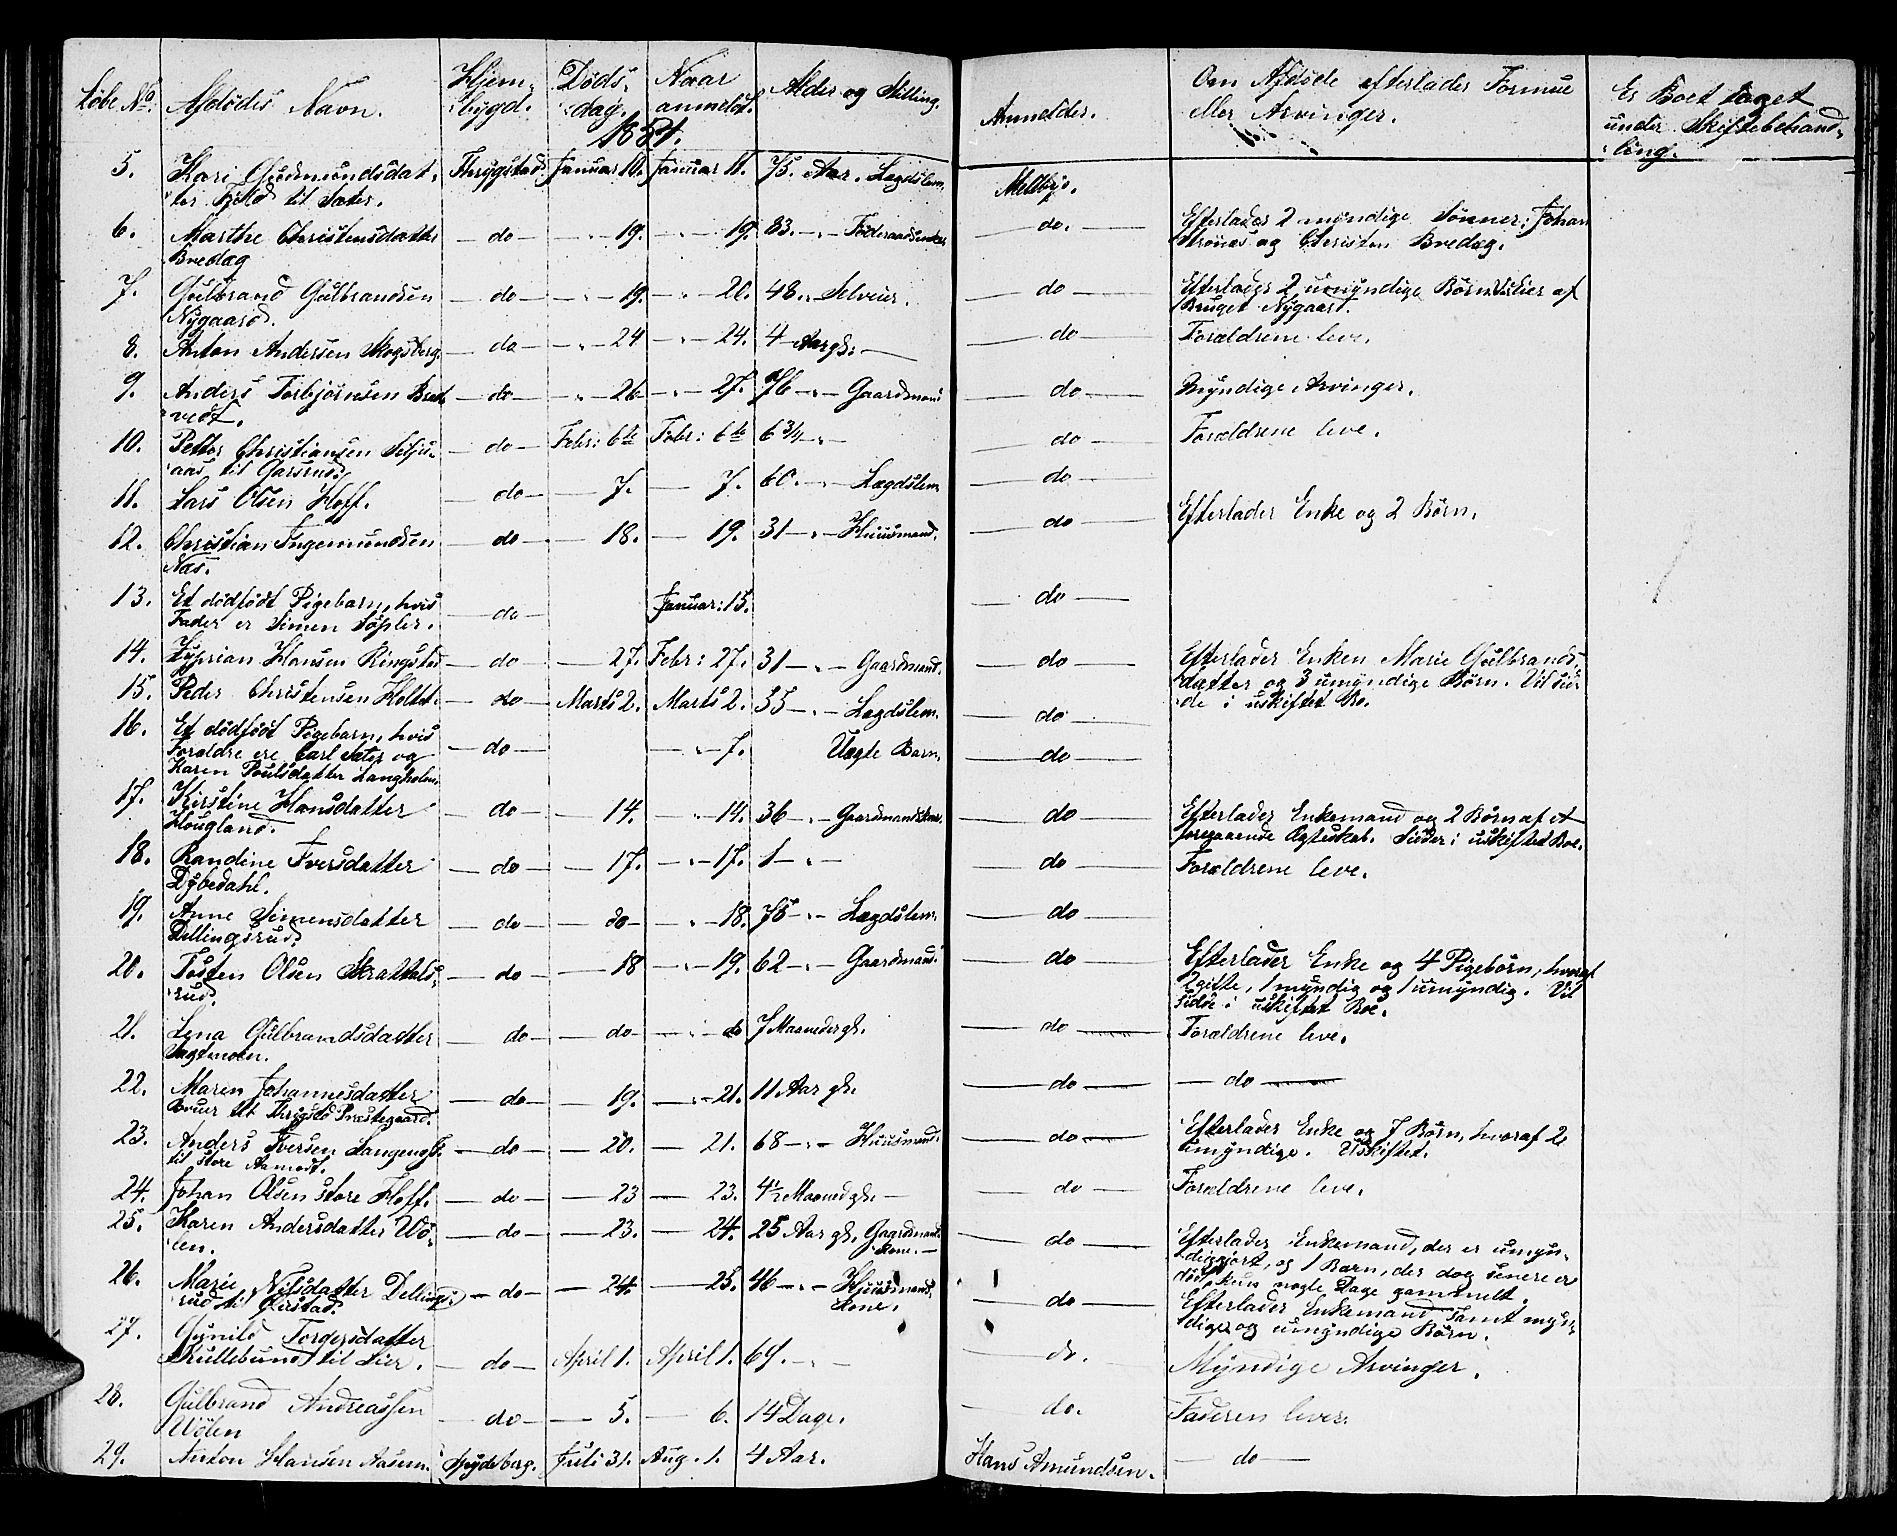 Løbe No. Afdødes Navn. Hjem- bygd. Døds- dag. Naar anmeldt. Alder og Stilling. Anmelder. Om Afdøde efterlader Formue eller Arvinger. Er Boet taget under Skiftebehand- ling.
5. Kari Gudmundsdat- Thrygstad. Januar 10. Januar 11. 75. Aar. Lægdslem. Melbye.
ter til Sæter.
6. Marthe Christensdatter — do — — " 19. — " 19. 83. — " Føderaadsenke. do. Efterlader 2 myndige Sønner: Johan
Bredæg Strønæs og Christen Bredæg.
7. Gulbrand Gulbrandsen — do — — " 19. — " 20. 48. " Selveier. — do — Efterlader 2 umyndige Børn. Eier af
Nygaard. Bruget Nygaard.
8. Anton Andersen Skogsberg. — do — — " 24 — " 24. 4 Aar gl. — — do — Forældrene leve.
9. Anders Torbjørnsen Bræk — do — — " 26 — " 27. 76 — " Gaardmand — do — Myndige Arvinger.
vedt.
10. Petter Christiansen — do — Febr: 6te Febr: 6te 6 3/4 — " — — do — Forældrene leve.
aas til
11. Lars Olsen Hoff. — do — — 7. — 7. 60. — Lægdslem — do —
12. Christian Ingemundsen — do — — 18. — 19. 31 — " Huusmand. — do — Efterlader Enke og 2 Børn.
Næs.
13. Et dødfødt Pigebarn, hvis — do — Januar: 15. — do —
Fader er Simen Søpler.
14. Zyprian Hansen Ringstad — do — — 27. Febr: 27. 31 — " Gaardmand. — do — Efterlader Enken Marie Gulbrands-
datter og 3 umyndige Børn. Vil sid-
de i uskiftet Bo.
15. Peder Christensen Holtet. — do — Marts 2. Marts 2. 55 — " Lægdslem. — do —
16. Et dødfødt Pigebarn, hvis — do — — " 7. Uægte Barn. — do —
Forældre ere Carl Sæter og
Karen Poulsdatter Langholm.
17. Kirstine Hansdatter — do — — 14. — " 14. 36 — " Gaardmandskone. — do — Efterlader Enkemand og 2 Børn af et
Hougland. foregaaende Ægteskab. Sidder i uskiftet Boe.
18. Randine Iversdatter — do — — 17. — " 17. 1 — " — — do — Forældrene leve.
Dybedahl.
19. Anne Simensdatter — do — — do — — " 18. 75 — " Lægdslem. — do —
Dillingsrud.
20. Tosten Olsen Skrattels- — do — — 18 — " 19. 62 — " Gaardmand. — do — Efterlader Enke og 4 Pigebørn, hvoraf
rud. 2 gifte, 1 myndig og 1 umyndig. Vil
sidde i uskiftet Boe.
21. Lena Gulbrandsdatter — do — — do — — " do 7 Maaneder gl. — do — Forældrene leve.
Sagtmoen.
22. Maren Johannesdatter — do — — 19. — " 21. 11 Aar gl. — do — — do —
til Thrygst. Præstegaard.
23. Anders Iversen Langeng — do — — 20. — 21. 68 — " Huusmand. — do — Efterlader Enke og 7 Børn, hvoraf 2
til store Aamodt. umyndige. Uskiftet.
24. Johan Olsen store Hoff. — do — — 23 — 23. 4 1/2 Maaned gl. — — do — Forældrene leve.
25. Karen Andersdatter Wø- — do — — 23. — 24. 25 Aar gl. Gaardmands- — do — Efterlader Enkemand, der er umyn-
len. kone. — diggjort, og 1 Barn, der dog senere er
død, kun nogle Dage gammelt.
26. Marie Nilsdatter Dellings- — do — — 24. — 25. 46 — " Huusmands — do — Efterlader Enkemand samt myn-
rud til kone. dige og umyndige Børn.
27. Gunild Torgersdatter
Kullebund til Lier. — do — April 1. April 1. 69. — " — do. Myndige Arvinger.
28. Gulbrand Andreassen — do — — 5. — 6. 14 Dage. — do. Faderen lever.
Wølen
29. Anton Hansen Aasum. Spydeberg. Juli 31. Aug. 1. 4 Aar. Hans Amundsen. — do —